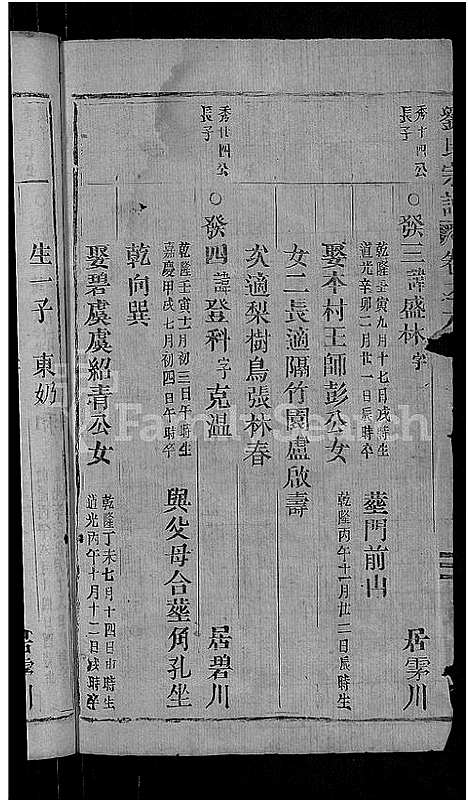 劉氏宗譜 卷之八
秀十四公
長子
○發三諱盛林字
乾隆壬寅九月十七日戌時生
道光辛卯二月廿一日辰時卒
葬門前山
居雩川
娶本村王師彭公女
乾隆丙午十一月廿二日辰時生
女二長適隔竹園盧啟壽
次適梨樹鳥張林春
秀廿四公
長子
○發四諱登科字克溫
居碧川
乾隆壬寅十一月初三日午時生
嘉慶甲戌七月初四日午時卒
與父母合葬角孔坐
乾向巽
娶碧虞虞紹青公女
乾隆丁未七月十四日申時生
道光丙午十月十二日戌時卒
生一子 東奶
FamilySearch